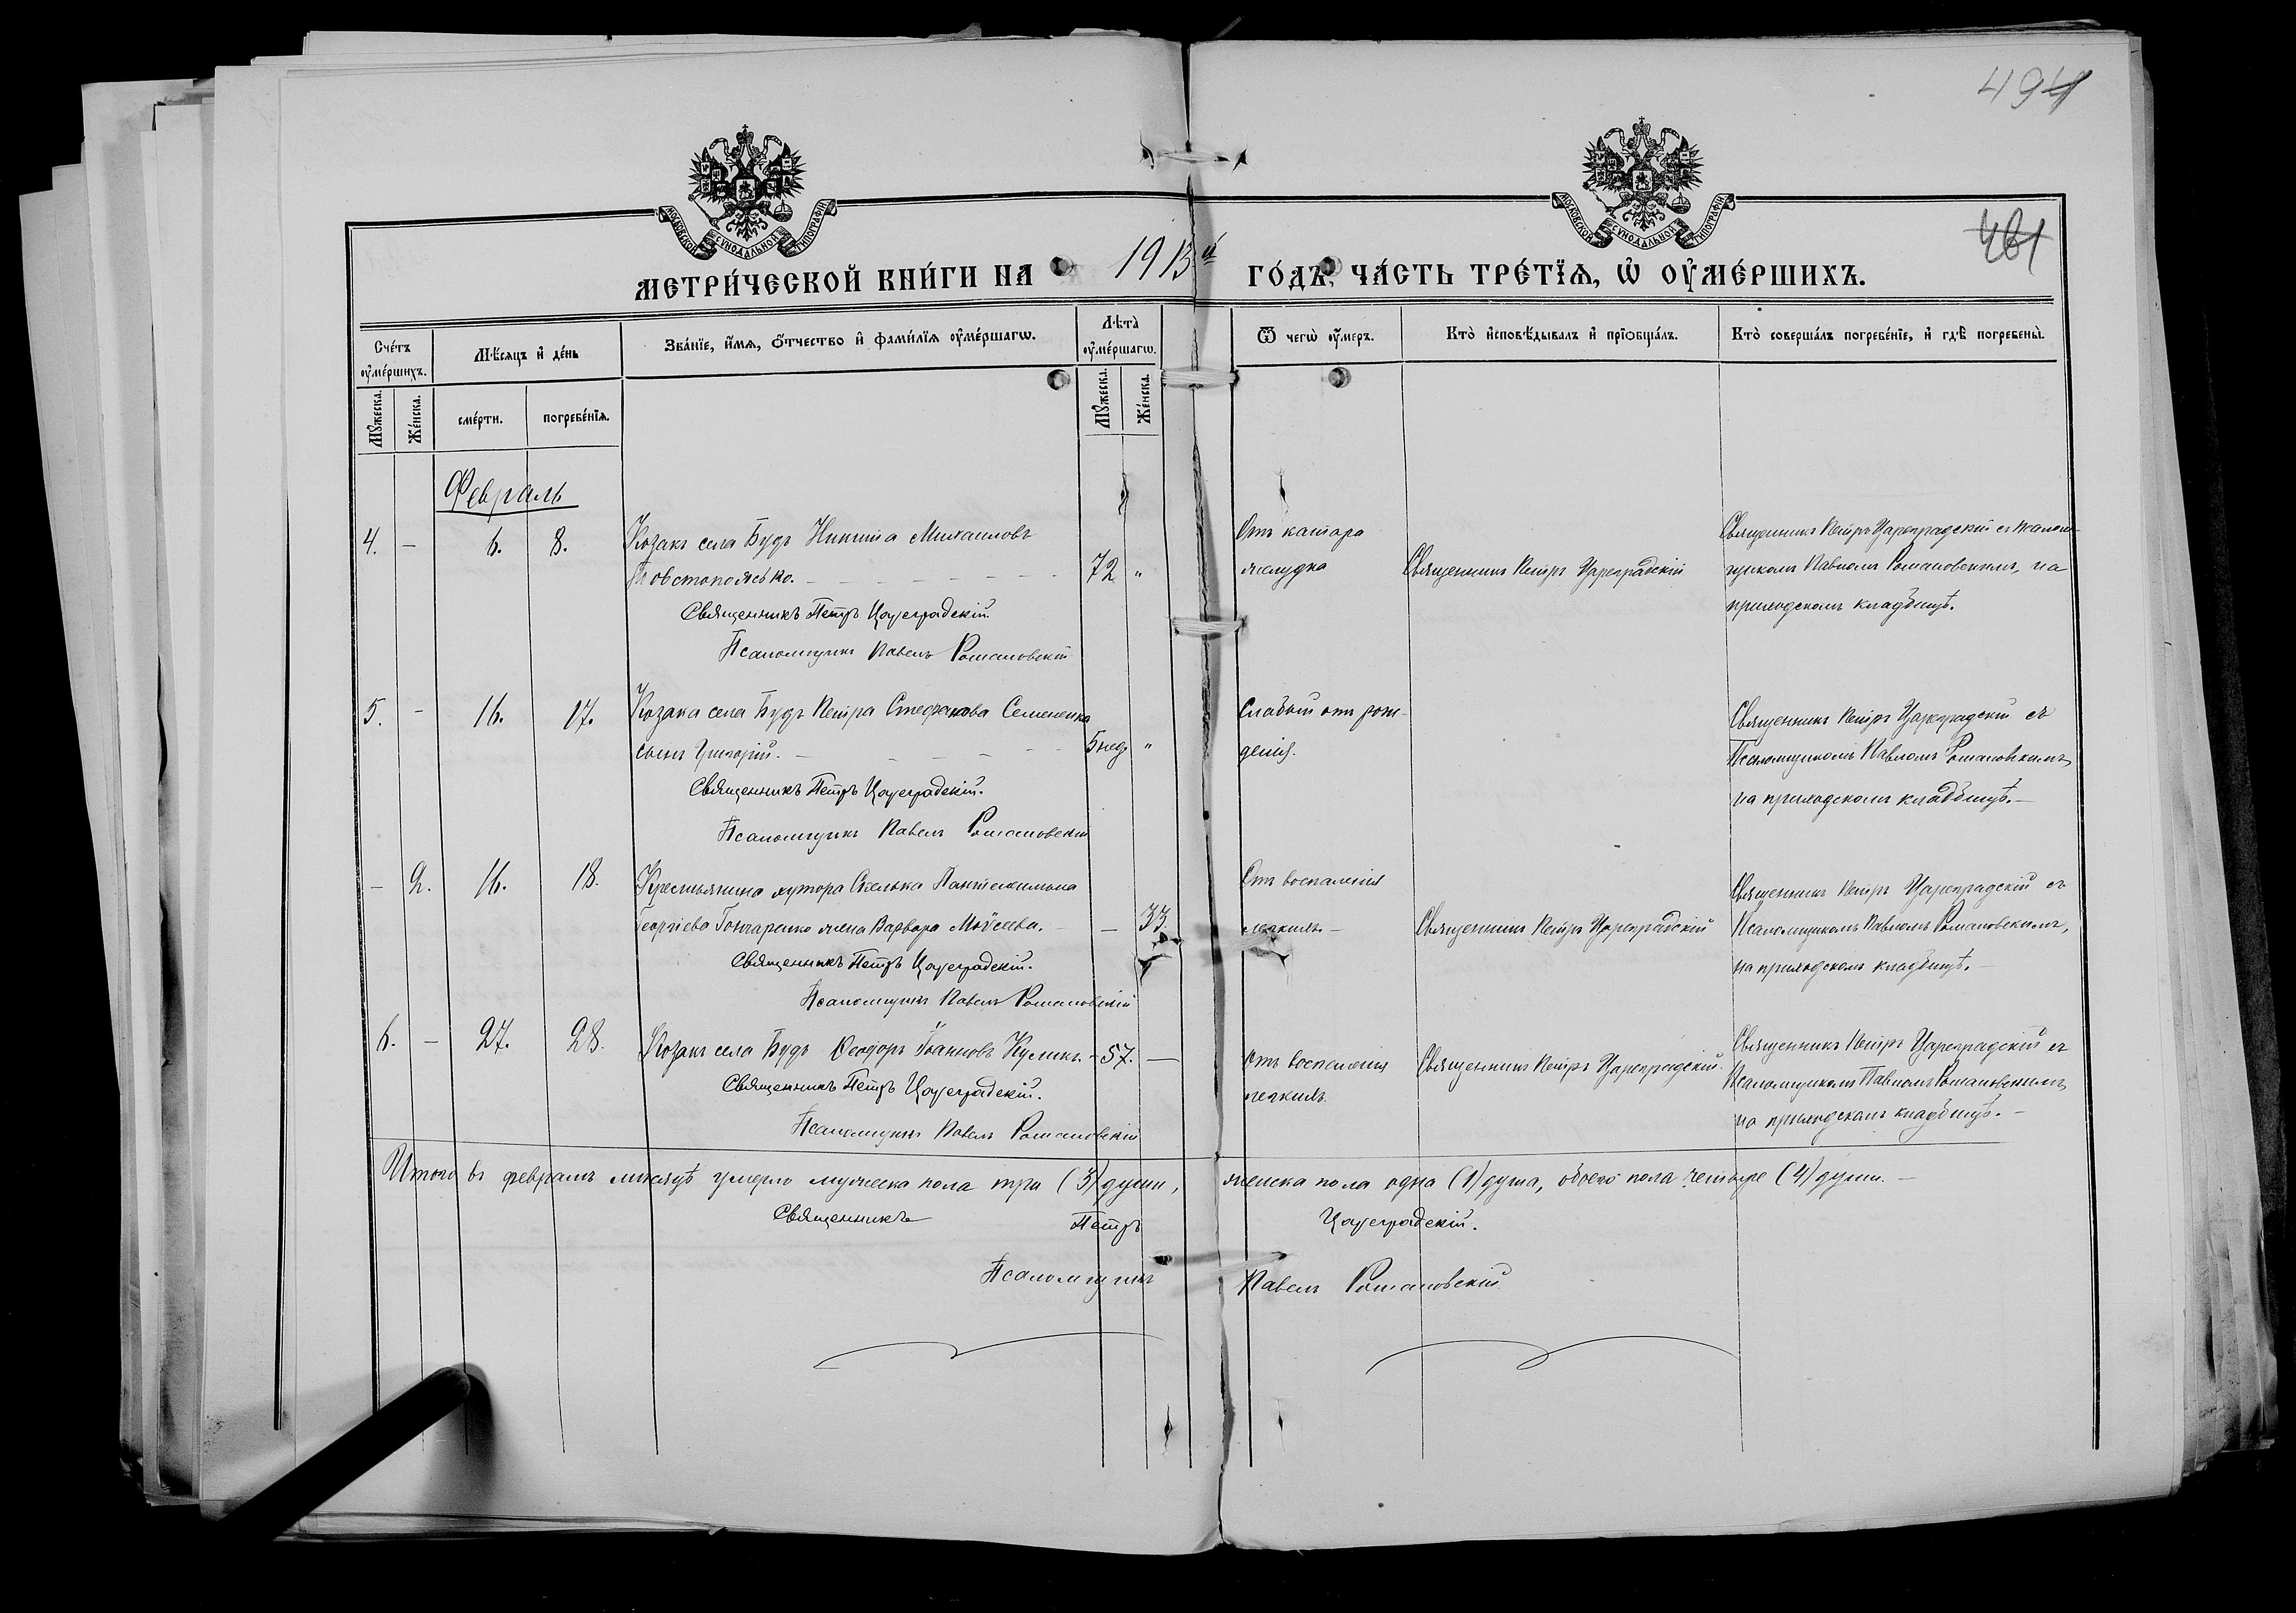 494
461
МОСКОВСКОЙ СѴНОДАЛЬНОЙ ТИПОГРАФІИ
МОСКОВСКОЙ СѴНОДАЛЬНОЙ ТИПОГРАФІИ
МЕТРИ́ЧЕСКОЙ КНИ́ГИ НА 1913й ГО́ДЪ, ЧА́СТЬ ТРЕ́ТЇѦ, Ѡ҆ ОУ҆МЕ́РШИХЪ.
Сче́тъ оу҆ме́ршихъ.
Мѣ́сяцъ и҆ де́нь
Зва́нїе, и҆́мѧ, ѻ҆́тчество и҆ фами́лїѧ оу҆ме́ршагѡ.
Лѣта̀ оу҆ме́ршагѡ.
Ѿ чегѡ̀ оу҆́меръ.
Кто̀ и҆сповѣ́дывалъ и҆ прїѡбща́лъ.
Кто̀ соверша́лъ погребе́нїе, и҆ гдѣ̀ погребены̀.
Мꙋ́жеска. Же́нска. сме́рти. погребе́нїѧ. Мꙋ́жеска. Же́нска.
Февраль
4. — 6. 8. Козакъ села Будъ Никита Михаиловъ
Товстопятько. — 72 "
Священникъ Петръ Цареградскій.
Псаломщикъ Павелъ Романовскій
Отъ катара
желудка
Священникъ Петръ Цареградскій
Священникъ Петръ Цареградскій съ псалом-
щикомъ Павломъ Романовскимъ, на
приходскомъ кладбищѣ.
5. - 16. 17. Козака села Будъ Петра Стефанова Семененка
сынъ Григорій. — 5 нед. "
Священникъ Петръ Цареградскій.
Псаломщикъ Павелъ Романовскій
Слабый отъ рож-
денія.
Священникъ Петръ Цареградскій съ
Псаломщикомъ Павломъ Романовскимъ,
на приходскомъ кладбищѣ.—
— 2. 16. 18. Крестьянина хутора Скелька Пантелеимона
Георгіева Гончаренко жена Варвара Моѵсеева. — 33.
Священникъ Петръ Цареградскій.
Псаломщикъ Павелъ Романовскій
Отъ воспаленія
легкихъ.—
Священникъ Петръ Цареградскій
Священникъ Петръ Цареградскій съ
Псаломщикомъ Павломъ Романовскимъ,
на приходскомъ кладбищѣ.—
6. — 27. 28. Козакъ села Будъ Ѳеодоръ Іоанновъ Куликъ. - 57. —
Священникъ Петръ Цареградскій.
Псаломщикъ Павелъ Романовскій
Отъ воспаленія
легкихъ.
Священникъ Петръ Цареградскій.
Священникъ Петръ Цареградскій съ
Псаломщикомъ Павломъ Романовскимъ,
на приходскомъ кладбищѣ.—
Итого въ февралѣ мѣсяцѣ умерло мужеска пола три (3) души, женска пола одна (1) душа, обоего пола четыре (4) души.—
Священникъ Петръ Цареградскій.
Псаломщикъ Павелъ Романовскій